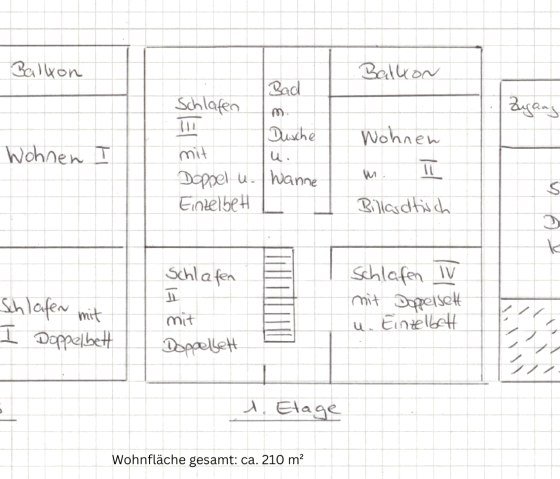 Balkon
Wohnen I
Schlafen mit
I Doppelbett
Schlafen
III
mit
Doppel u.
Einzelbett
Bad
m.
Dusche
u.
Wanne
Balkon
Wohnen
m. II
Billardtisch
Schlafen
II
mit
Doppelbett
Schlafen IV
mit Doppelbett
u. Einzelbett
Zugang
1. Etage
Wohnfläche gesamt: ca. 210 m²